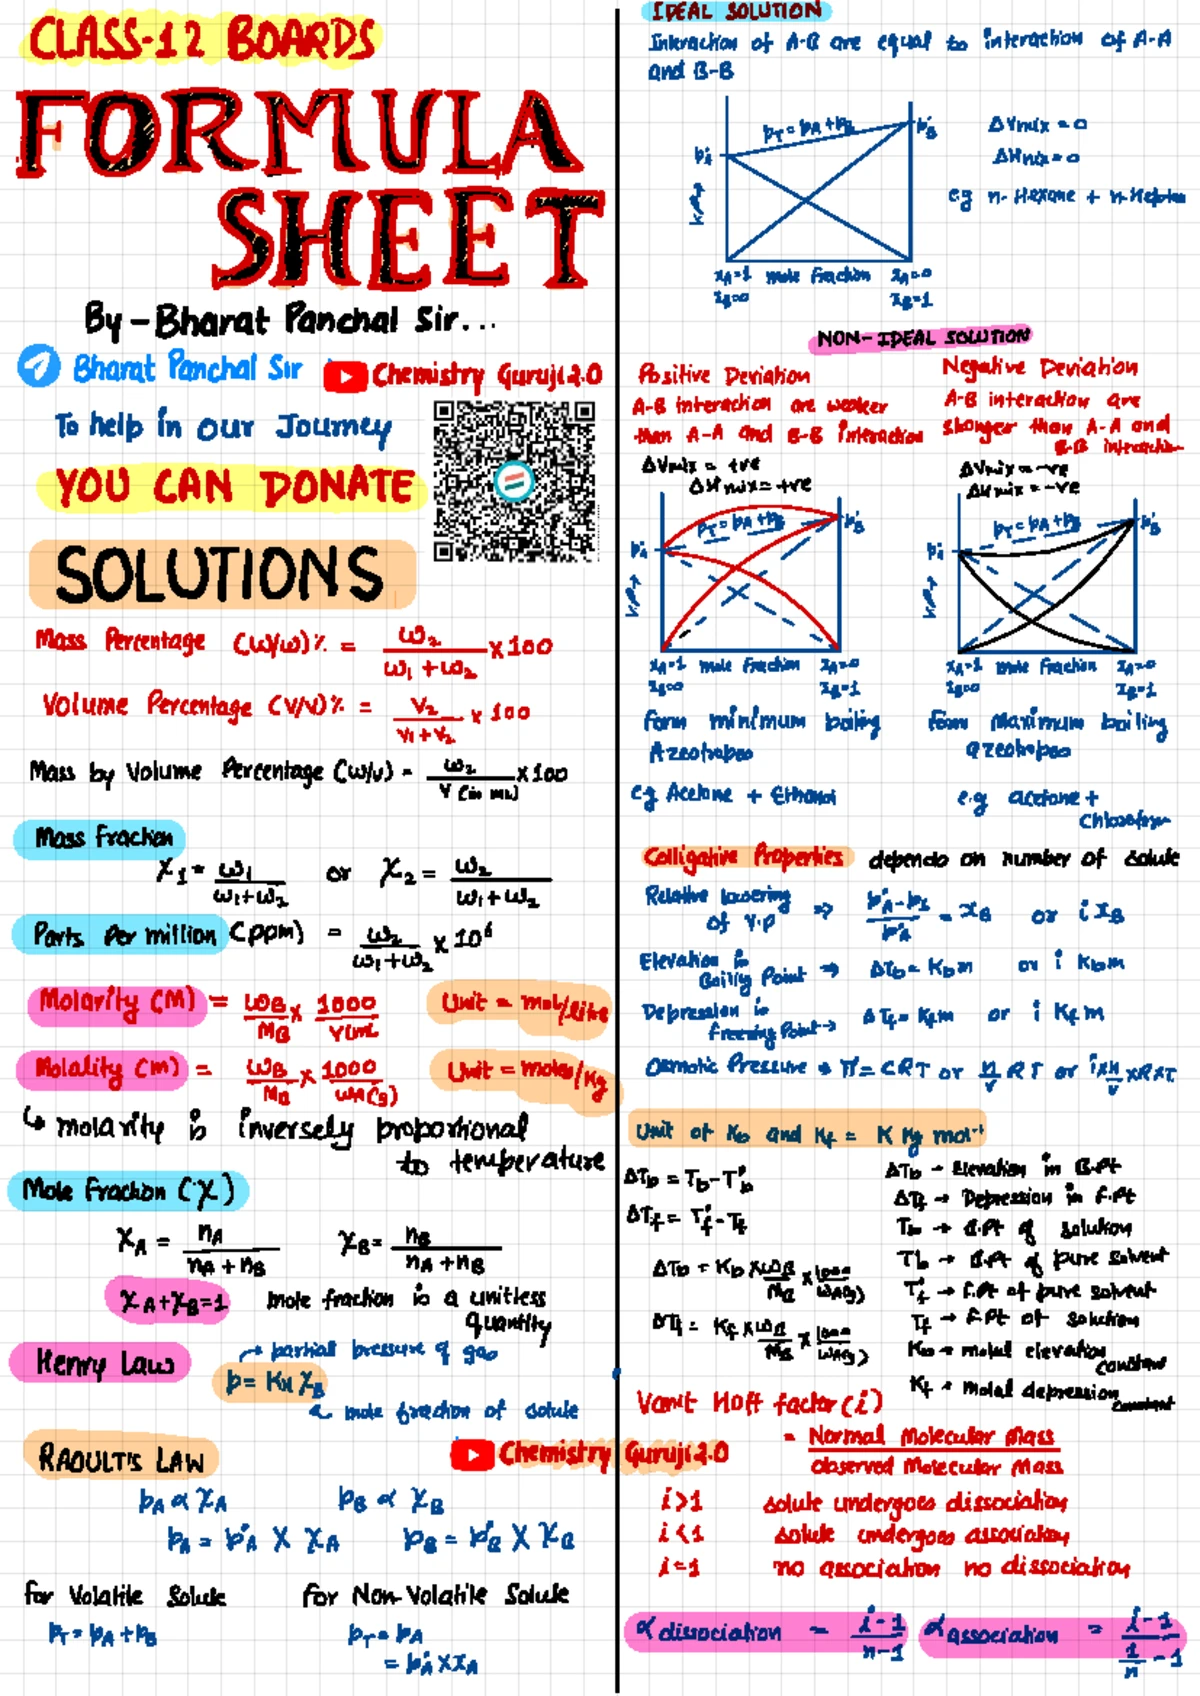 CLASS-12 BOARDS
FORMULA
SHEET
By - Bharat Panchal Sir...
Bharat Panchal Sir
Chemistry Guruji 2.0
To help in our Journey
YOU CAN DONATE
SOLUTIONS
Mass Percentage (w/w)% = w₂ / w₁ + w₂ × 100
Volume Percentage (V/V)% = V₂ / V₁ + V₂ × 100
Mass by Volume Percentage (w/v) = w₂ / V (in mL) × 100
Mass fraction
χ₁ = w₁ / w₁+w₂ or χ₂ = w₂ / w₁+w₂
Parts Per million (ppm) = w₂ / w₁+w₂ × 10⁶
Molarity (M) = wB / MB × 1000 / V(mL Unit = mol/litre
Molality (m) = wB / MB × 1000 / wA(g) Unit = moles/Kg
↳ molarity is inversely proportional
to temperature
Mole Fraction (χ)
χA = nA / nA + nB χB = nB / nA + nB
χA+χB=1 mole fraction is a unitless
quantity
Henry Law → partial pressure of gas
p = KH χB
mole fraction of solute
RAOULT'S LAW
pA ∝ χA pB ∝ χB
pA = p°A × χA pB = p°B × χB
for Volatile Solute for Non-Volatile Solute
pT = pA + pB pT = pA
= p°A × χA
IDEAL SOLUTION
Interaction of A-B are equal to interaction of A-A
and B-B
pT = pA + pB
p°A p°B
ΔVmix = 0
ΔHmix = 0
e.g n-Hexane + n-Heptane
χA=1 mole fraction χA=0
χB=0 χB=1
NON-IDEAL SOLUTION
Positive Deviation
A-B interaction are weaker
than A-A and B-B interaction
ΔVmix = +ve
ΔHmix = +ve
pT = pA + pB
p°A p°B
χA=1 mole fraction χA=0
χB=0 χB=1
form minimum boiling
Azeotropes
e.g Acetone + Ethanol
Negative Deviation
A-B interaction are
stronger than A-A and
B-B interaction
ΔVmix = -ve
ΔHmix = -ve
pT = pA + pB
p°A p°B
χA=1 mole fraction χA=0
χB=0 χB=1
form maximum boiling
azeotropes
e.g acetone +
Chloroform
Colligative Properties depends on number of solute
Relative lowering
of V.P ⇒ p°A - pA / p°A = χB or i χB
Elevation in
Boiling Point → ΔTb = Kb m or i Kb m
Depression in
freezing Point → ΔTf = Kf m or i Kf m
Osmotic Pressure → π = CRT or n/V RT or i×n/V × R×T
Unit of Kb and Kf = K Kg mol⁻¹
ΔTb = Tb - T°b
ΔTf = T°f - Tf
ΔTb = Kb × wB / MB × 1000 / wA(g)
ΔTf = Kf × wB / MB × 1000 / wA(g)
ΔTb → Elevation in B.Pt
ΔTf → Depression in F.Pt
Tb → B.Pt of solution
T°b → B.Pt of pure solvent
T°f → F.Pt of pure solvent
Tf → F.Pt of solution
Kb → molal elevation
constant
Kf → molal depression
constant
Vant Hoff factor (i)
= Normal Molecular Mass
Observed Molecular Mass
Chemistry Guruji 2.0
i>1 solute undergoes dissociation
i<1 solute undergoes association
i=1 no association no dissociation
α dissociation = i-1 / n-1 α association = i-1 / 1/n - 1